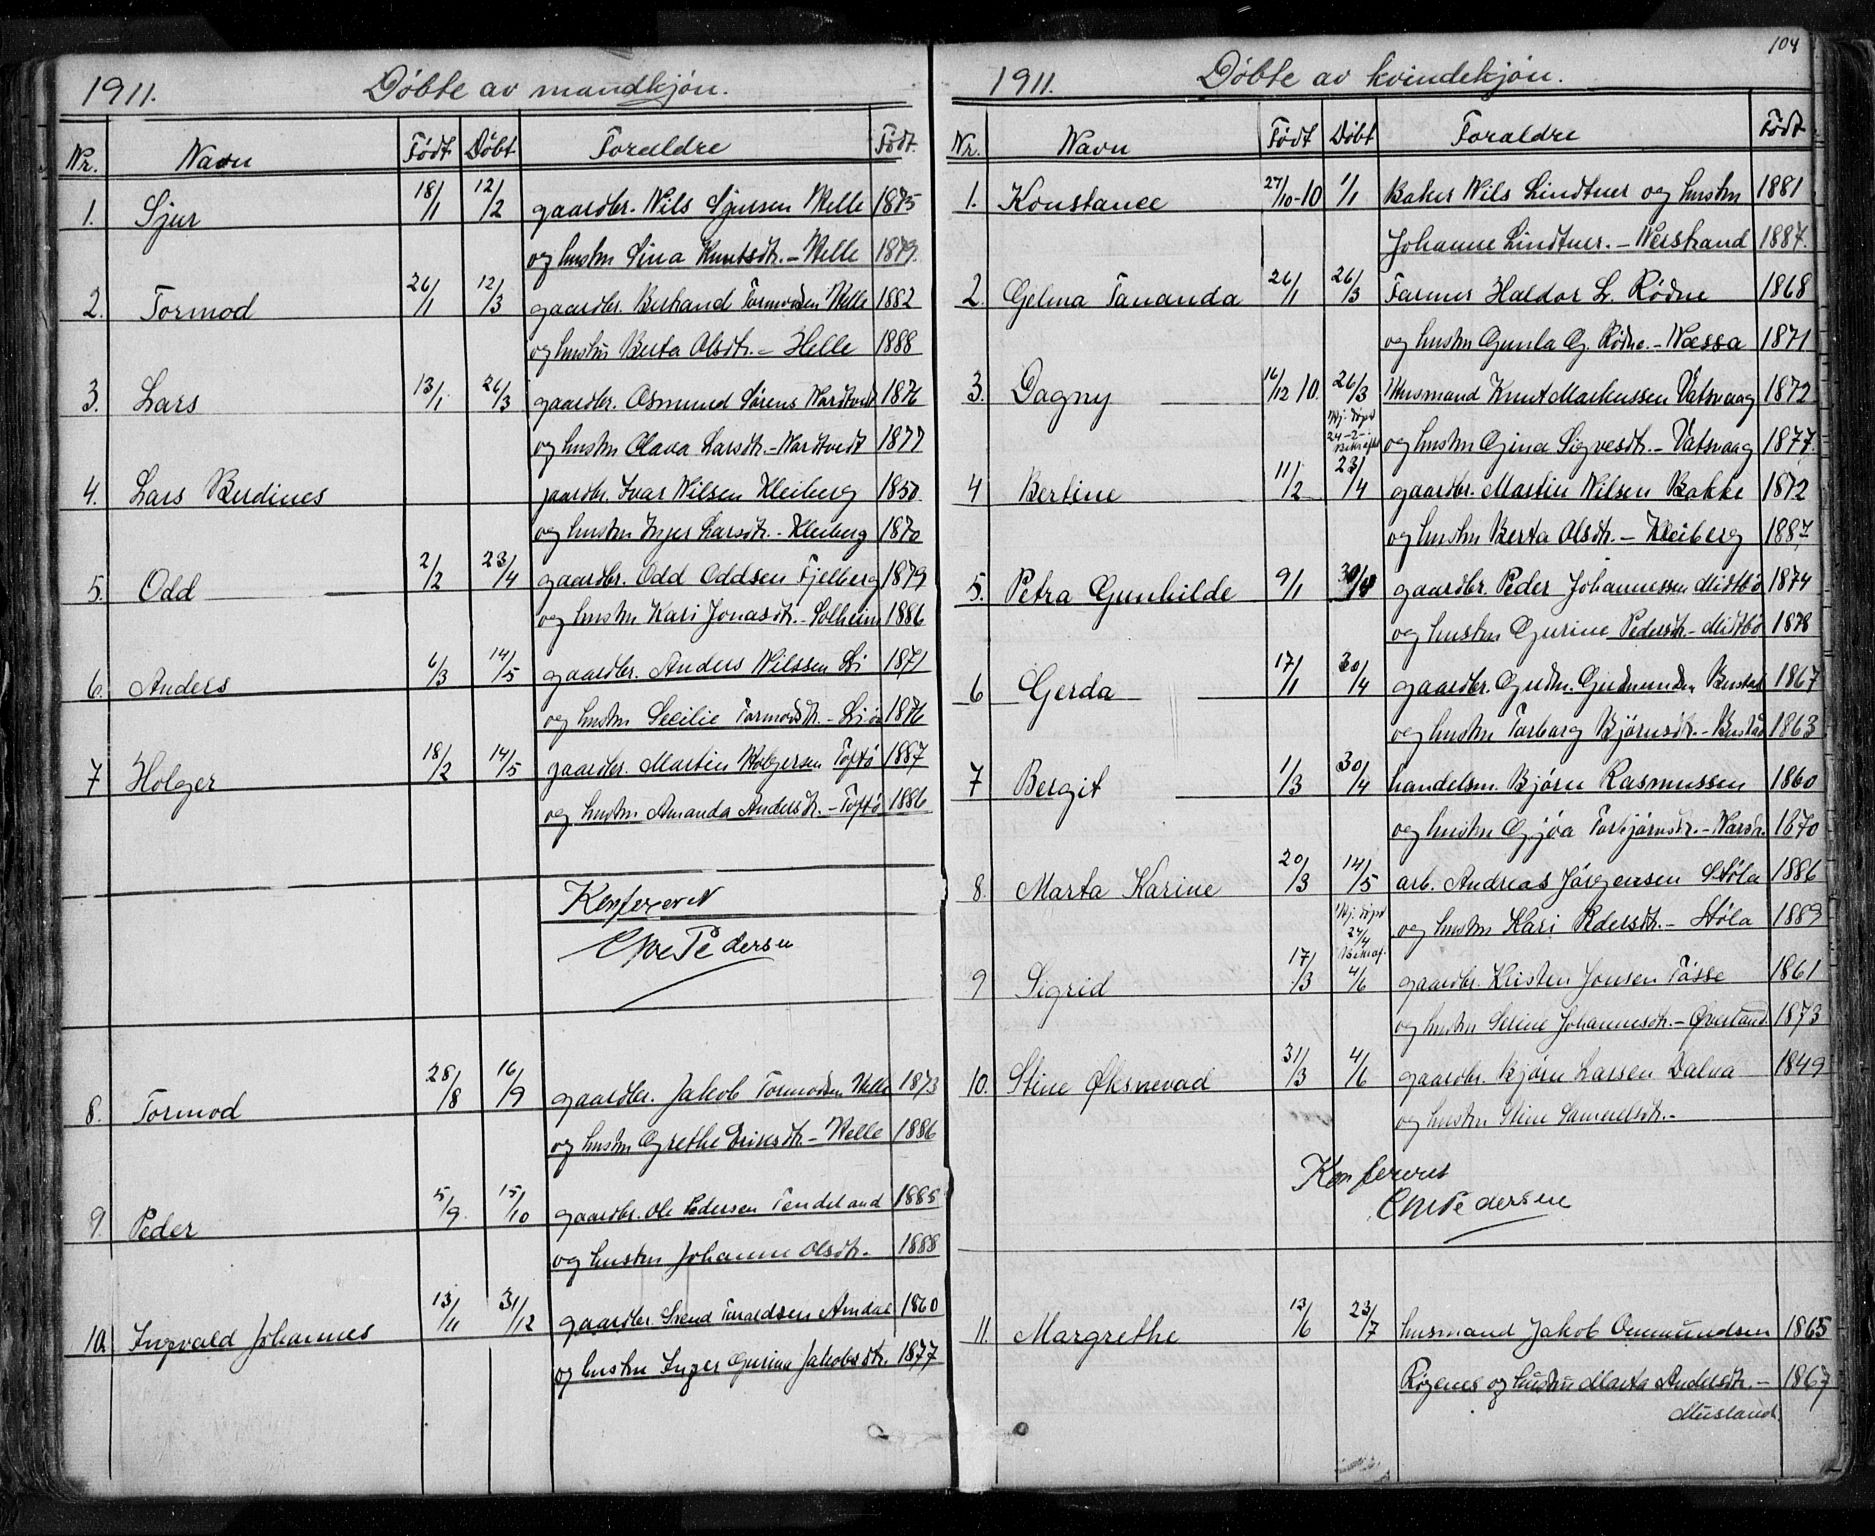 1911. Døbte av mandkjøn.
Nr. Navn Født Døbt Foraldre Født.
1. Sjur 18/1 12/2 gaardbr. Nils Sjursen Helle 1875
og hustru Sina Knutsdtr. - Helle 1879.
2. Tormod 26/1 12/3 gaardbr. Bertrand Tormodsen Helle 1882
og hustru Berta Olsdtr. - Helle 1888
3. Lars 13/1 26/3 gaardbr. Osmund Sørens 1876
og hustru Olava Larsdtr. - 1877
4. Lars Berdines gaardbr. Ivar Nilsen Kleiberg 1850
og hustru Inger Larsdtr. - Kleiberg 1870
5. Odd 2/2 23/4 gaardbr. Odd Oddsen Fjelberg 1879
og hustru Kari Jonasdtr. - Solheim 1886
6. Anders 6/3 14/5 gaardbr. Anders Nilssen 1871
og hustru Secilie Tormodsdtr. - 1876
7 Holger 18/2 14/5 gaardbr. Martin Holgersen Toftø 1887
og hustru Amanda Andersdtr. - Toftø 1886
Konfereret
Chr Pedersen
8. Tormod 28/8 16/9 gaardbr. Jakob Tormodsen Helle 1873
og hustru Grethe Eriksdtr. - Helle 1886
9. Peder 5/9 15/10 gaardbr. Ole Pedersen Tendeland 1885
og hustru Johanne Olsdtr. 1888
10. Ingvald Johannes 13/11 31/12 gaardbr. Svend Toraldsen Amdal 1860
og hustru Inger Gurina Jakobsdtr. 1877
104
1911. Døbte av kvindekjøn.
Nr. Navn Født Døbt Foraldre Født
1. Konstance 27/10-10 1/1 Baker Nils Lindtner og hustru 1881
Johanne Lindtner. - Nerstrand 1887.
2. Gelma Tananda 26/1 26/3 Farmer Haldor L. Rødne 1868
og hustru Gunla G. Rødne. - Næssa 1871
3. Dagny 16/12 10. 26/3 Husmand Knut Markussen Vatsvaag 1872
Hj. døpt 24-2- Bekræftet og hustru Gjina Sigvesdtr. - Vatsvaag 1877.
4 Bertine 11/2 23/4 gaardbr. Martin Nilsen Bakke 1872
og hustru Berta Olsdtr. - Kleiberg 1887
5. Petra Gunhilde 9/1 30/4 gaardbr. Peder Johannessen Midtbø 1874
og hustru Gurine Pedersdtr. - Midtbø 1878
6 Gerda 17/1 30/4 gaardbr. Gudm. Gudmundsen Bustad 1867
og hustru Torborg Bjørnsdtr. - Bustad 1863
7 Bergit 1/3 30/4 handelsm. Bjørn Rasmussen 1860
og hustru Gjøa Torbjørnsdtr. - 1870
8. Marta Karine 20/3 14/5 arb. Andreas Jørgensen Støla 1886
Hj. døpt 24/4 Bekræf. og hustru Kari Pedersdtr. - Støla 1889
9 Sigrid 17/3 4/6 gaardbr. Kristen Jonsen Tøsse 1861
og hustru Serine Johannesdtr. - Øverland 1873
10. Stine Øksnevad 31/3 4/6 gaardbr. Bjørn Larsen Dalva 1849
og hustru Stine Samuelsdtr. -
Konfereret
Chr Pedersen
11. Margrethe 13/6 23/7 husmand Jakob Ommundsen 1865
Røgenes og hustru Marta Andersdtr. - 1867
Musland.